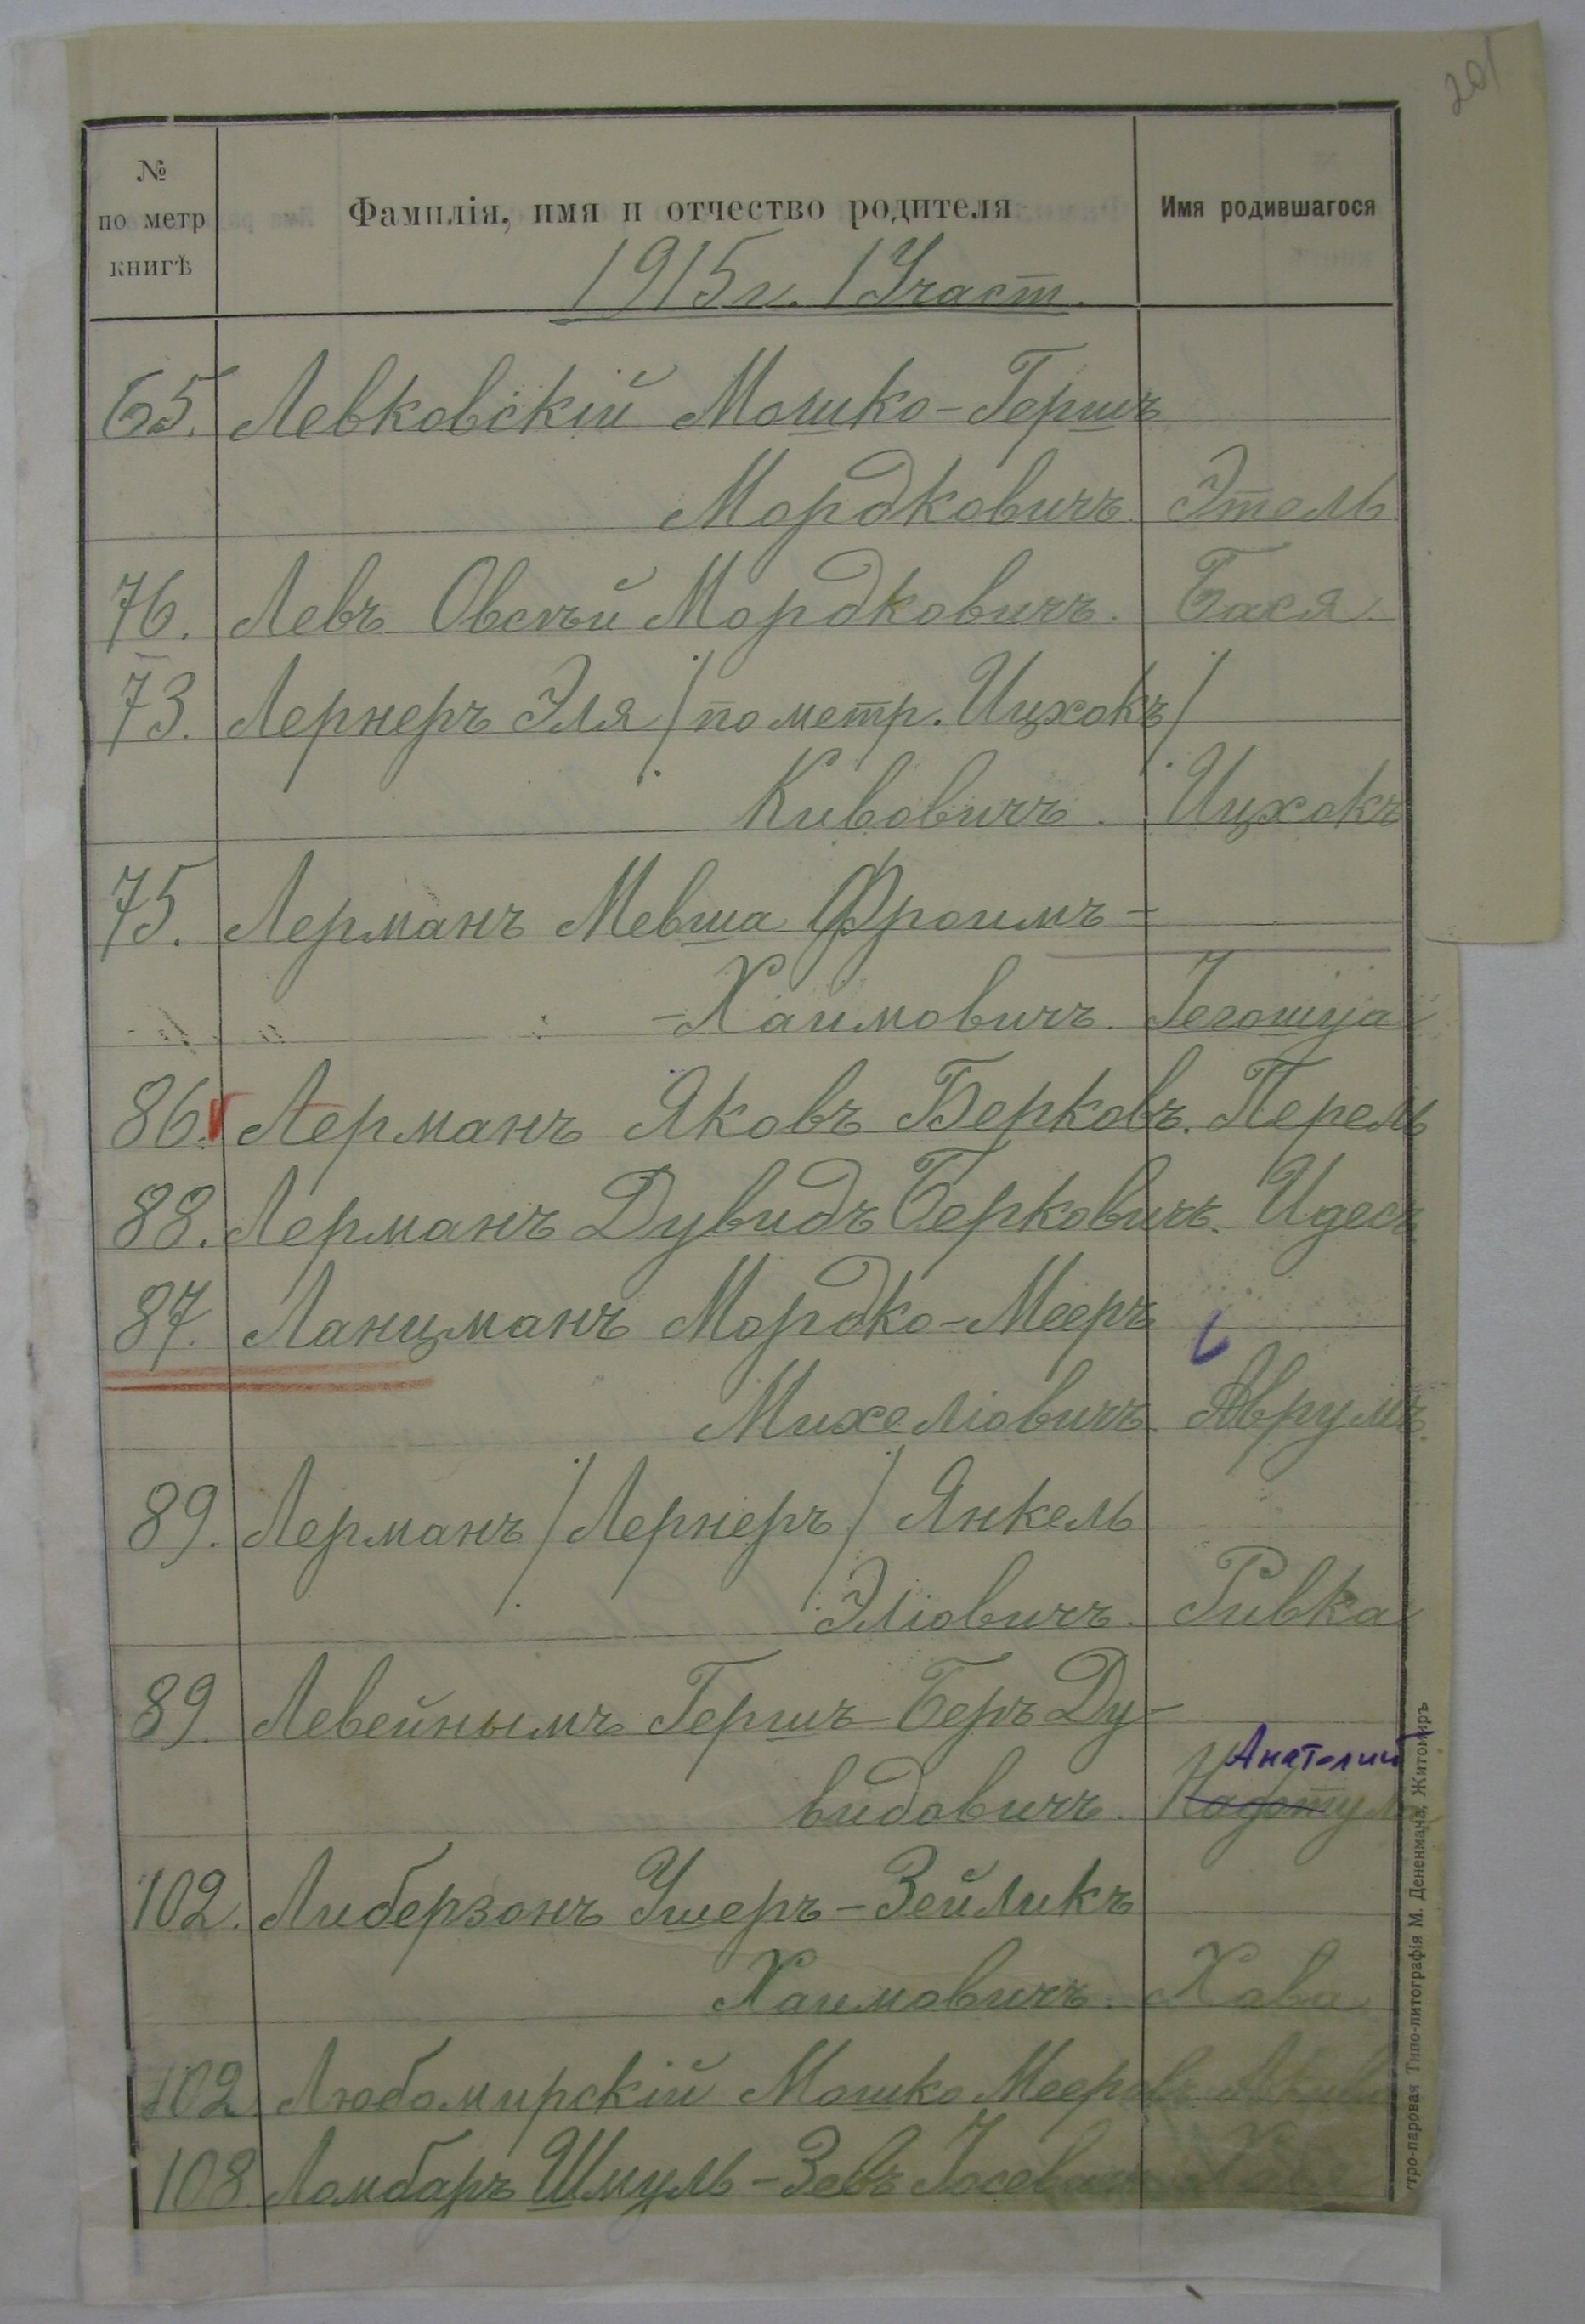 201
№
по метр
книгѣ
Фамилія, имя и отчество родителя
Имя родившагося
1915 г. 1 Участ.
65. Левковскій Мошко-Гершъ
Мордковичъ. Этель
76. Левъ Овсѣй Мордковичъ. Бася.
73. Лернеръ Эля /по метр. Ицхокъ/
Кивовичъ. Ицхокъ
75. Лерманъ Мевша Фроимъ-
-Хаимовичъ. Іегошуа
86. Лерманъ Яковъ Берковъ. Перель
88. Лерманъ Дувидъ Берковичъ. Идесъ
87. Ланцманъ Мордко-Мееръ
Михеліовичъ. Аврумъ.
89. Лерманъ /Лернеръ/ Янкель
Эліовичъ. Ривка
89. Левейнымъ Гершъ-Беръ Ду-
Анатолий
видовичъ.
102. Либерзонъ Ушеръ-Зейликъ
Хаимовичъ. Хава
102 Любомирскій Мошко Мееровъ
108 Ломбаръ Шмуль-Зевъ
тро-паровая Типо-литографія М. Дененмана, Житомиръ